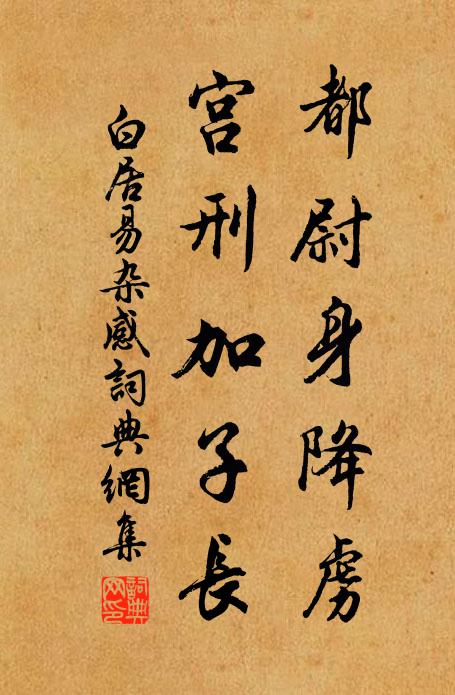 都尉身降虜
宮刑加子長
白居易杂感詞典網集
詞典网印